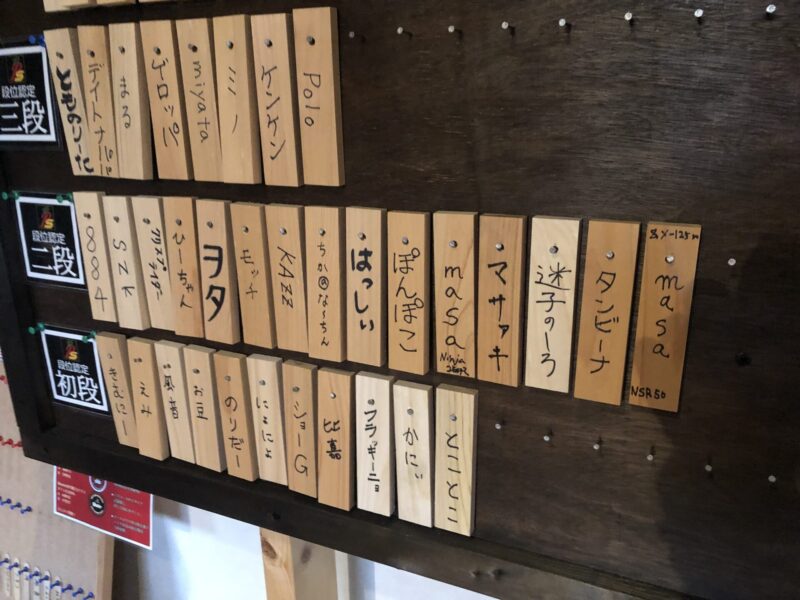 段位認定
三段
とものりーた
デイトナ
まる
ゲロッパ
miyata
ミノ
ケンケン
Polo
段位認定
二段
8884
SZK
ひーちゃん
ヲタ
モッチ
KAZZ
ちか@な~ちん
はっしぃ
ぽんぽこ
masa
Ninja
マサアキ
迷子のーろ
タンビーナ
masa
NSR50
段位認定
初段
えみ
お豆
のりだー
にょにょ
ショーG
比嘉
フラッギーニョ
かにぃ
とことこ